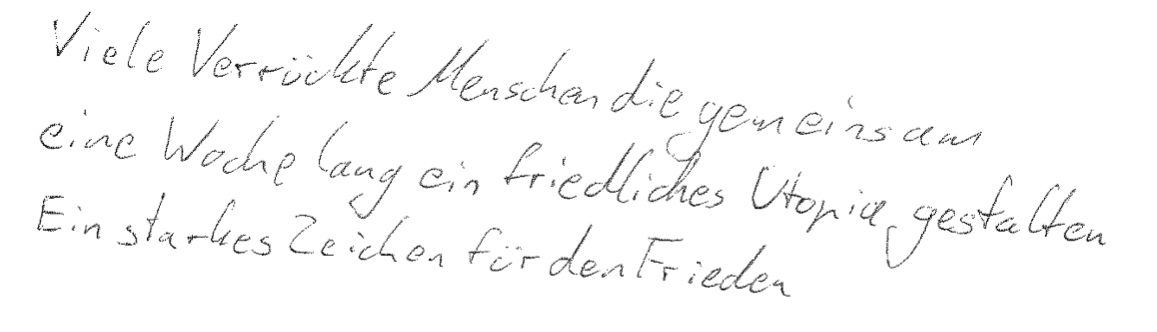 Viele Verrückte Menschen die gemeinsam
eine Woche lang ein friedliches Utopia gestalten
Ein starkes Zeichen für den Frieden